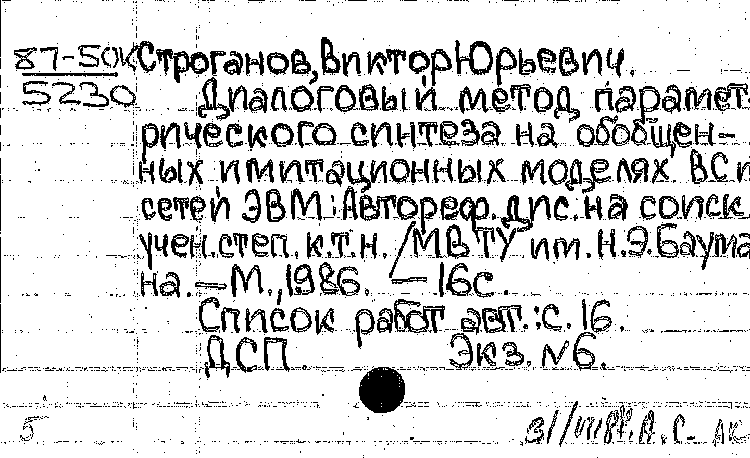 87-50к Строганов, Виктор Юрьевич.
5230 Диалоговый метод парамет
рического синтеза на обобщен-
ных имитационных моделях ВС и
сетей ЭВМ: Автореф. дис. на соиск
учен. степ. к.т.н. / МВТУ им. Н.Э. Баума
на. — М., 1986. — 16с.
Список работ авт.: с. 16.
ДСП Экз. №6.
5 А.С.